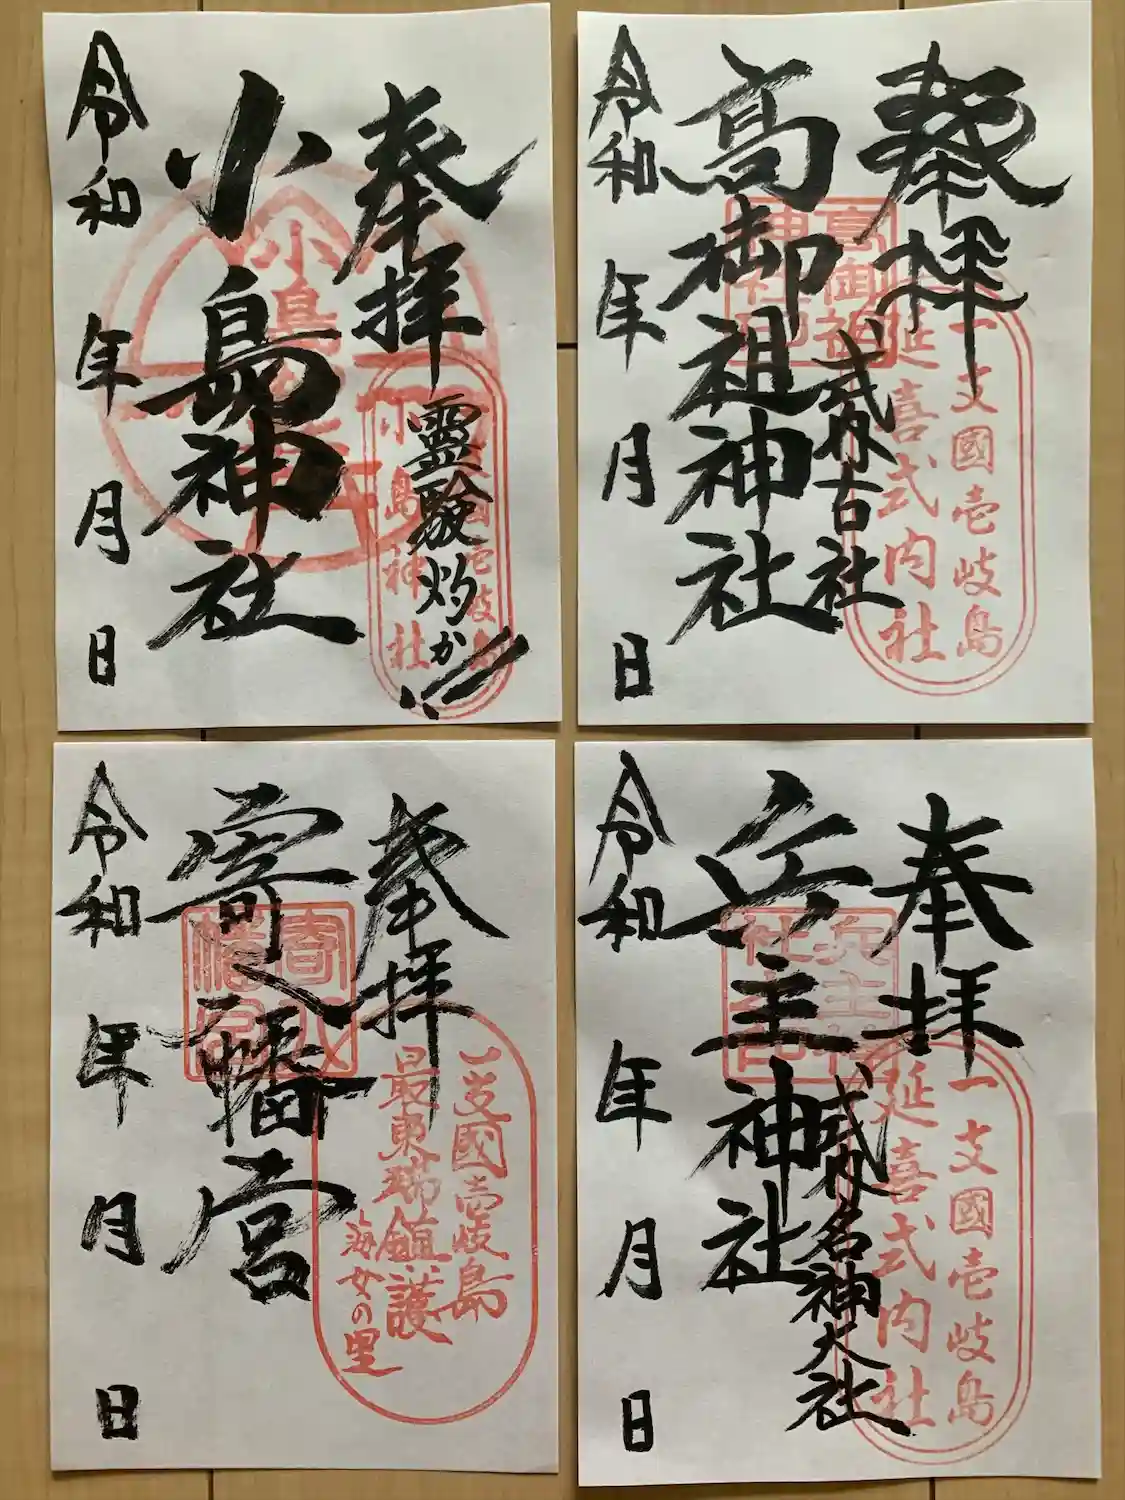 奉拝
霊験灼か
小島神社
令和 年 月 日
小島神社
奉拝
式内古社
高御祖神社
令和 年 月 日
高御祖
神社印
一支國壱岐島
延喜式内社
奉拝
寄八幡宮
令和 年 月 日
寄八
幡宮
一支國壱岐島
最東瑞鎮護
海女の里
奉拝
式内名神大社
兵主神社
令和 年 月 日
兵主神
社之印
一支國壱岐島
延喜式内社